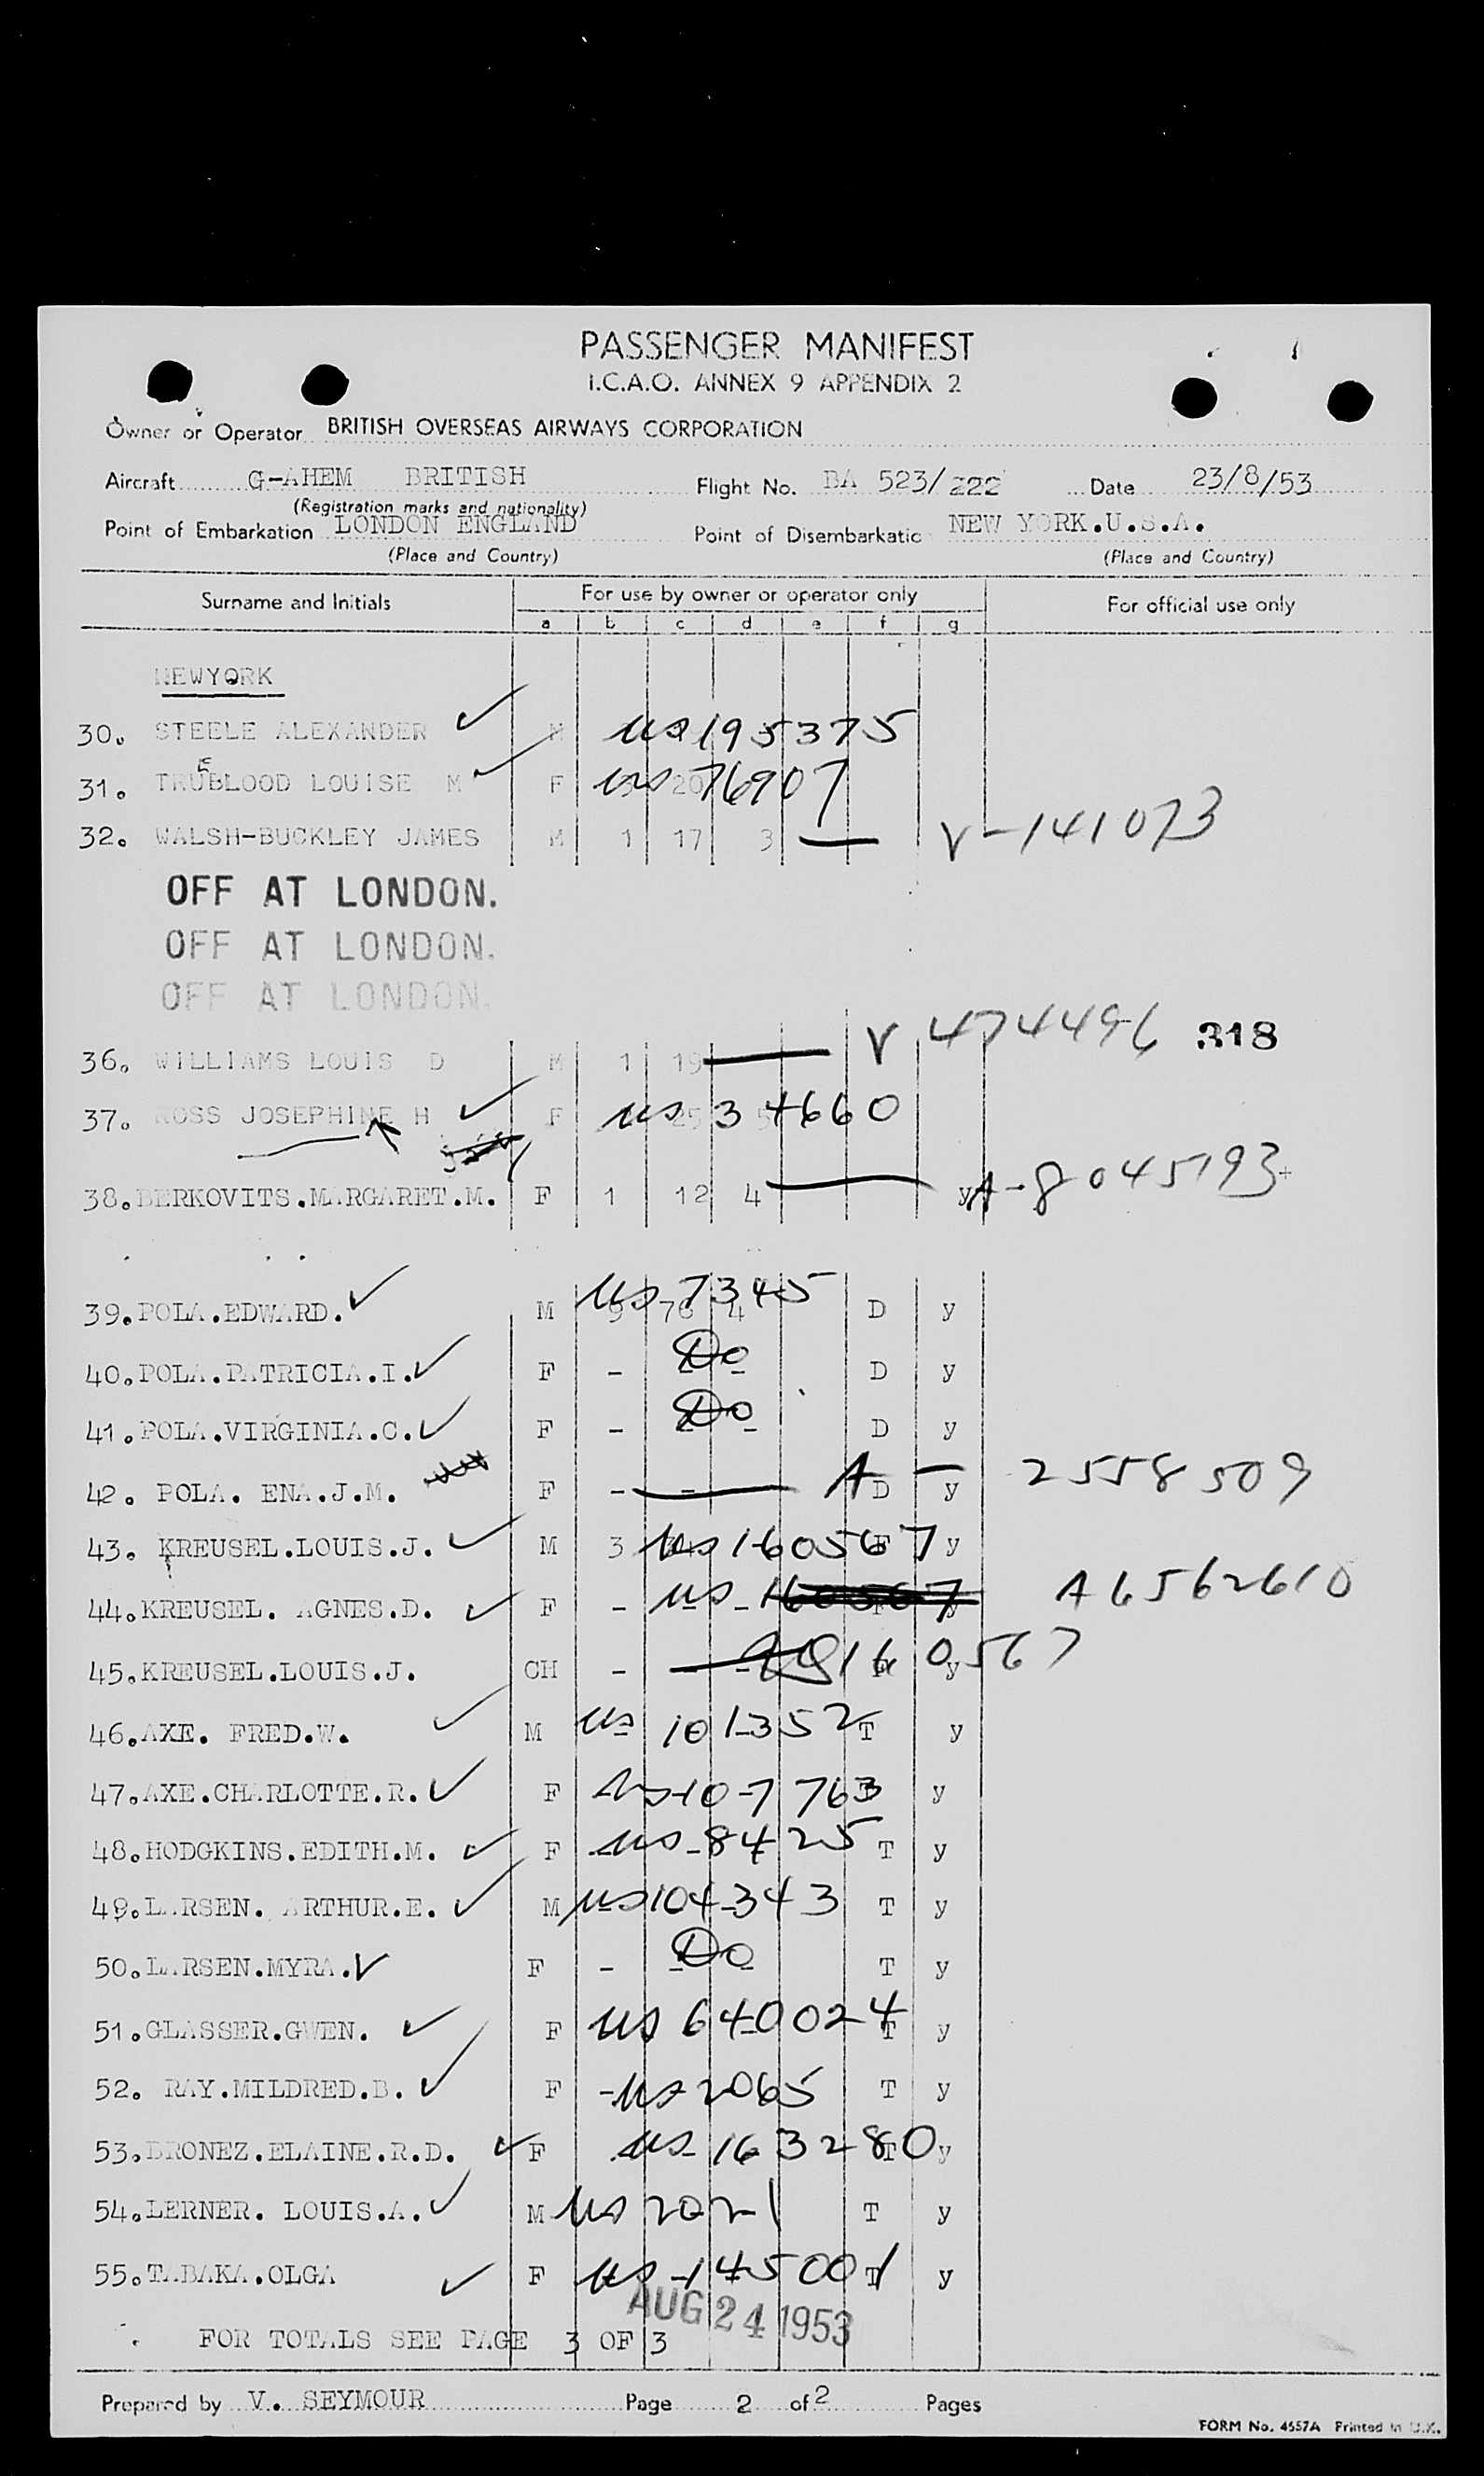 PASSENGER MANIFEST
I.C.A.O. ANNEX 9 APPENDIX 2
Owner or Operator BRITISH OVERSEAS AIRWAYS CORPORATION
Aircraft G-AHEM BRITISH Flight No. BA 523/222 Date 23/8/53
(Registration marks and nationality)
Point of Embarkation LONDON ENGLAND Point of Disembarkatic NEW YORK.U.S.A.
(Place and Country) (Place and Country)
Surname and Initials For use by owner or operator only For official use only
a b c d e f g
NEWYORK
30. STEELE ALEXANDER ✓ M us 195375
E
31. TRUBLOOD LOUISE M ✓ F us 76907
32. WALSH-BUCKLEY JAMES M 1 17 3 — V-141073
OFF AT LONDON.
OFF AT LONDON.
OFF AT LONDON.
36. WILLIAMS LOUIS D M 1 19 — V 474496 318
37. ROSS JOSEPHINE H ✓ F us 34660
38.BERKOVITS.MARGARET.M. F 1 12 4 — y A-8045193
39.POLA.EDWARD. ✓ M us 7345 D y
40.POLA.PATRICIA.I. ✓ F - Do - D y
41.POLA.VIRGINIA.C. ✓ F - Do - D y
42. POLA. ENA.J.M. F - — A D — y 2558509
43. KREUSEL.LOUIS.J. ✓ M 3 us 160567 F y
44.KREUSEL. AGNES.D. ✓ F - us - 160567 A6562610
45.KREUSEL.LOUIS.J. CH - - - 160567 y
46.AXE. FRED.W. ✓ M us 101352 T y
47.AXE.CHARLOTTE.R. ✓ F us 107763 y
48.HODGKINS.EDITH.M. ✓ F us 8425 T y
49.LARSEN. ARTHUR.E. ✓ M us 104343 T y
50.LARSEN.MYRA. ✓ F - Do - T y
51.GLASSER.GWEN. ✓ F us 640024 T y
52. RAY.MILDRED.B. ✓ F us 2065 T y
53.DRONEZ.ELAINE.R.D. ✓ F us 163280 T y
54.LERNER. LOUIS.A. ✓ M us 2021 T y
55.TABAKA.OLGA ✓ F us 145001 T y
AUG 24 1953
FOR TOTALS SEE PAGE 3 OF 3
Prepared by V. SEYMOUR Page 2 of 2 Pages
FORM No. 4557A Printed in U.K.